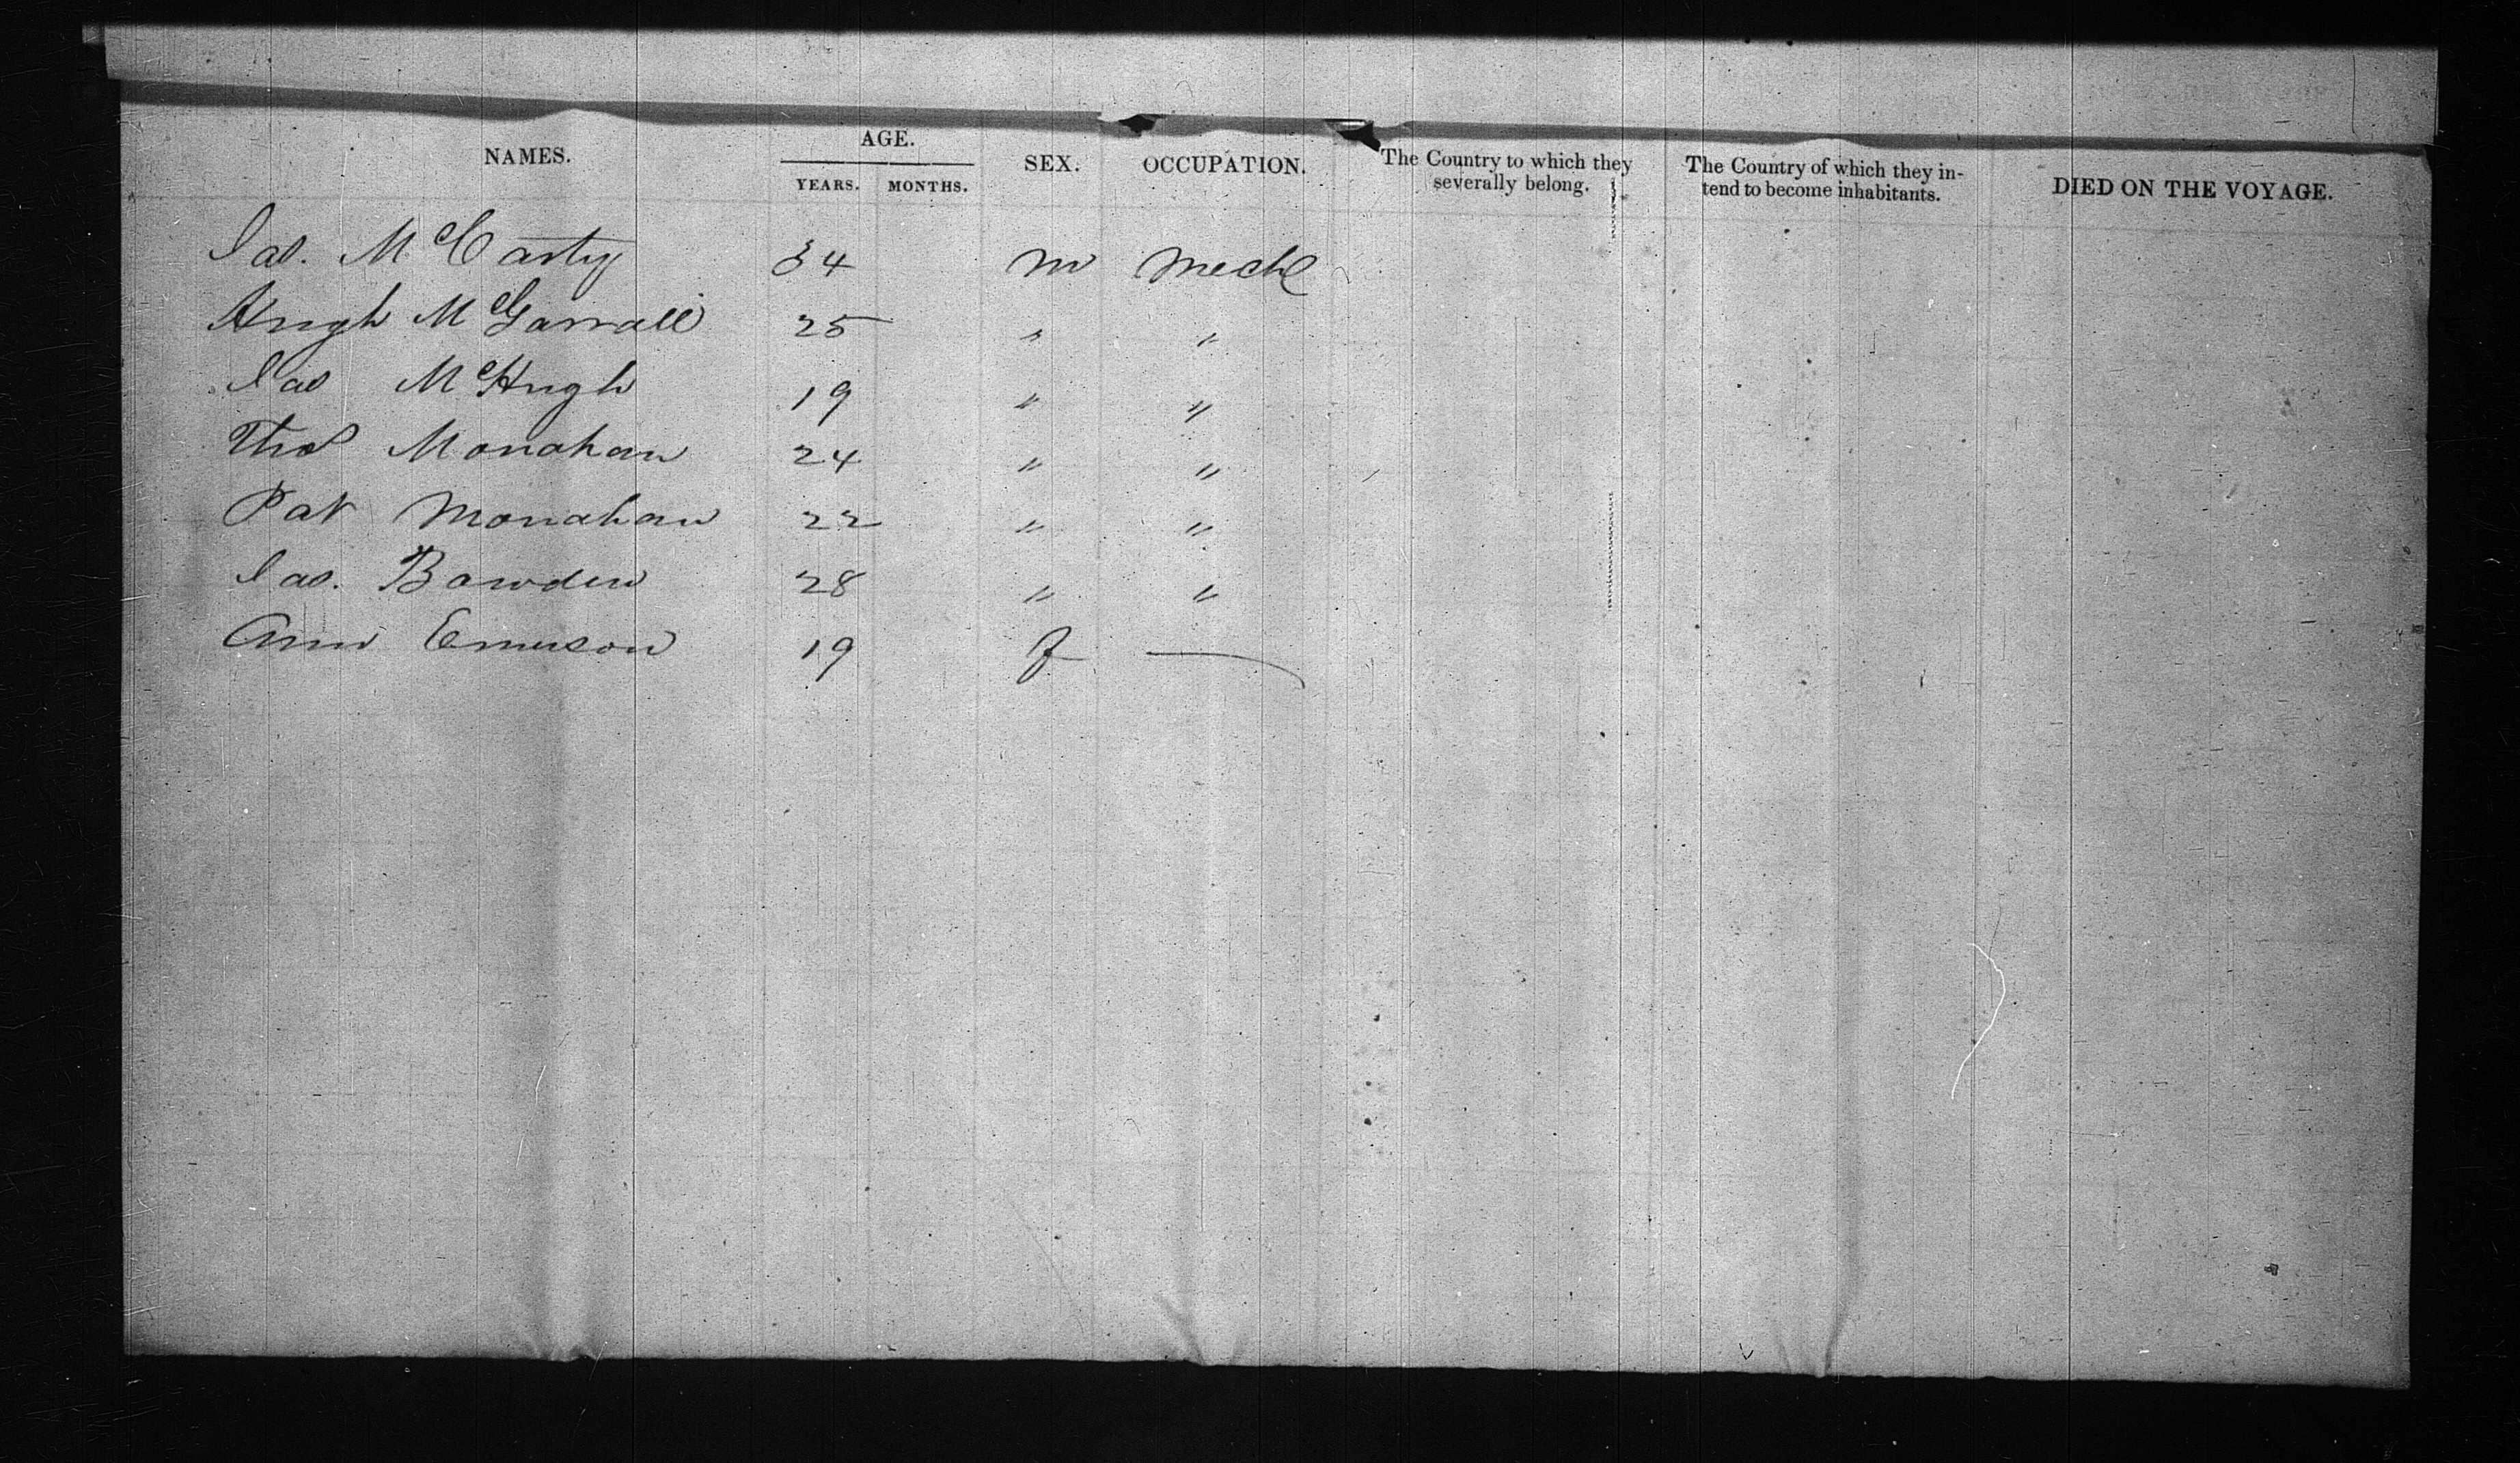 NAMES. AGE. SEX. OCCUPATION. The Country to which they severally belong. The Country of which they in- tend to become inhabitants. DIED ON THE VOYAGE.
YEARS. MONTHS.
Jas. McCarty 34 m Mech
Hugh McGarrall 25 " "
Jas McHugh 19 " "
Thos Monahan 24 " "
Pat Monahan 22 " "
Jas. Bowden 28 " "
Ann Emerson 19 f —